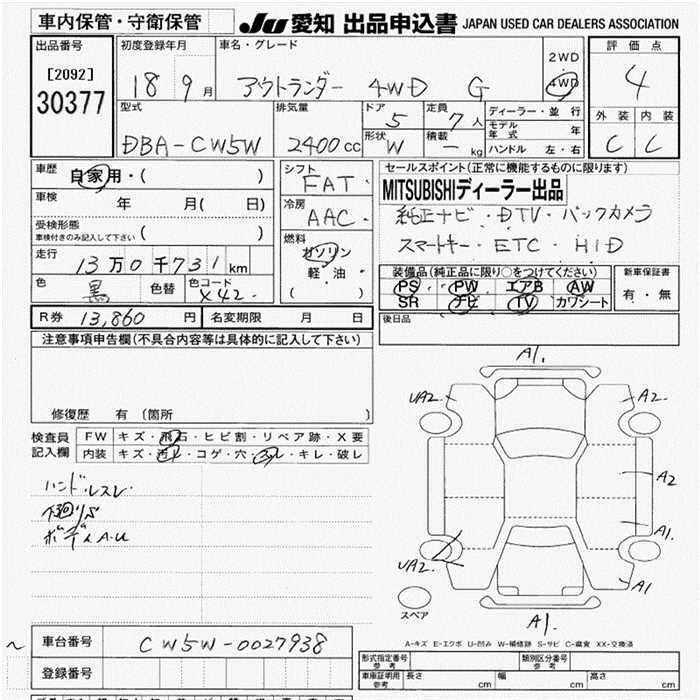 車内保管・守衛保管
JU 愛知 出品申込書 JAPAN USED CAR DEALERS ASSOCIATION
出品番号
[2092]
30377
初度登録年月
18 9 月
車名・グレード
アウトランダー 4WD G
2WD
4WD
評価点
4
外装 内装
C C
型式
DBA-CW5W
排気量
2400cc
ドア
5
定員
7 人
形状
W
積載
- kg
ディーラー・並行
モデル年式 年
ハンドル 左・右
車歴
自家用・( )
車検 年 月( 日)
受検形態
車検付きのみ記入して下さい ( )
走行
13万0千731 km
色
黒
色替
色コード
X42
シフト
FAT
冷房
AAC
燃料
ガソリン
軽・油
( )
セールスポイント(正常に機能するものに限ります)
MITSUBISHIディーラー出品
純正ナビ・DTV・バックカメラ
スマートキー・ETC・HID
装備品(純正品に限り○をつけてください)
PS PW エアB AW
SR ナビ TV カワシート
新車保証書
有・無
R券 13,860 円
名変期限 月 日
後日品
注意事項申告欄(不具合内容等は具体的に記入して下さい)
修復歴 有〔箇所 〕
検査員記入欄
FW キズ・飛石・ヒビ割・リペア跡・X要
内装 キズ・汚レ・コゲ・穴・スレ・キレ・破レ
ハンドルスレ
下回りS
ボディA.U
A1.
UA2. A2
A2
A1
UA2. A1
A1.
スペア
A-キズ E-エクボ U-凹み W-補修跡 S-サビ C-腐食 XX-交換済
車台番号 CW5W-0027938
登録番号
形式指定番号 参考
類別区分番号 参考
車庫証明用 参考
長さ cm
幅 cm
高さ cm